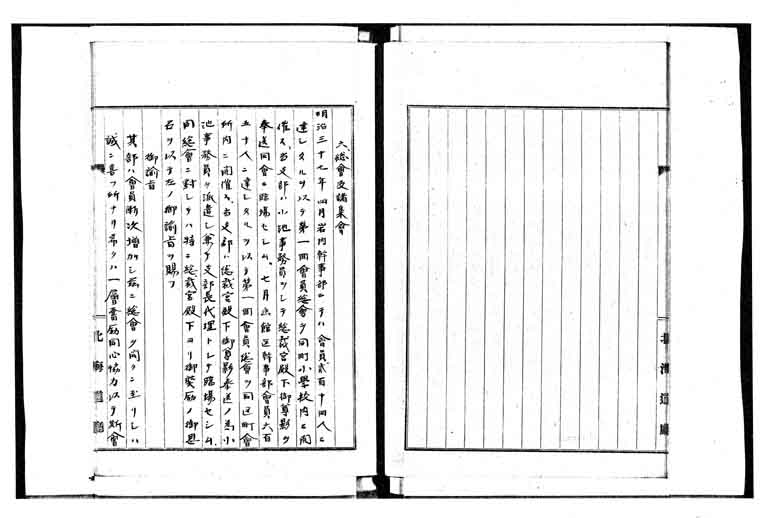 六 總會及諸集會
明治三十七年四月岩内幹事部ニテハ會員貳百十四人ニ
達シタルヲ以テ第一回會員總會ヲ同町小學校内ニ開
催ス、当支部ハ小池事務員ヲシテ總裁宮殿下御尊影ヲ
奉送同會ニ臨場セシム。七月函館區幹事部會員六百
五十人ニ達シタルヲ以テ第一回會員總會ヲ同区町會
所内ニ開催ス、当支部ハ總裁宮殿下御尊影奉送ノ為小
池事務員ヲ派遣シ兼テ支部長代理トシテ臨場セシム、
同總會ニ對シテハ特ニ總裁宮殿下ヨリ御奬励ノ御思
召ヲ以テ左ノ御諭旨ヲ賜フ
御諭旨
其部ハ會員漸次増加シ茲ニ總會ヲ開クニ至リシハ
誠ニ喜フ所ナリ希クハ一層奮励同心協力以テ斯會
北海道廳
北海道廳